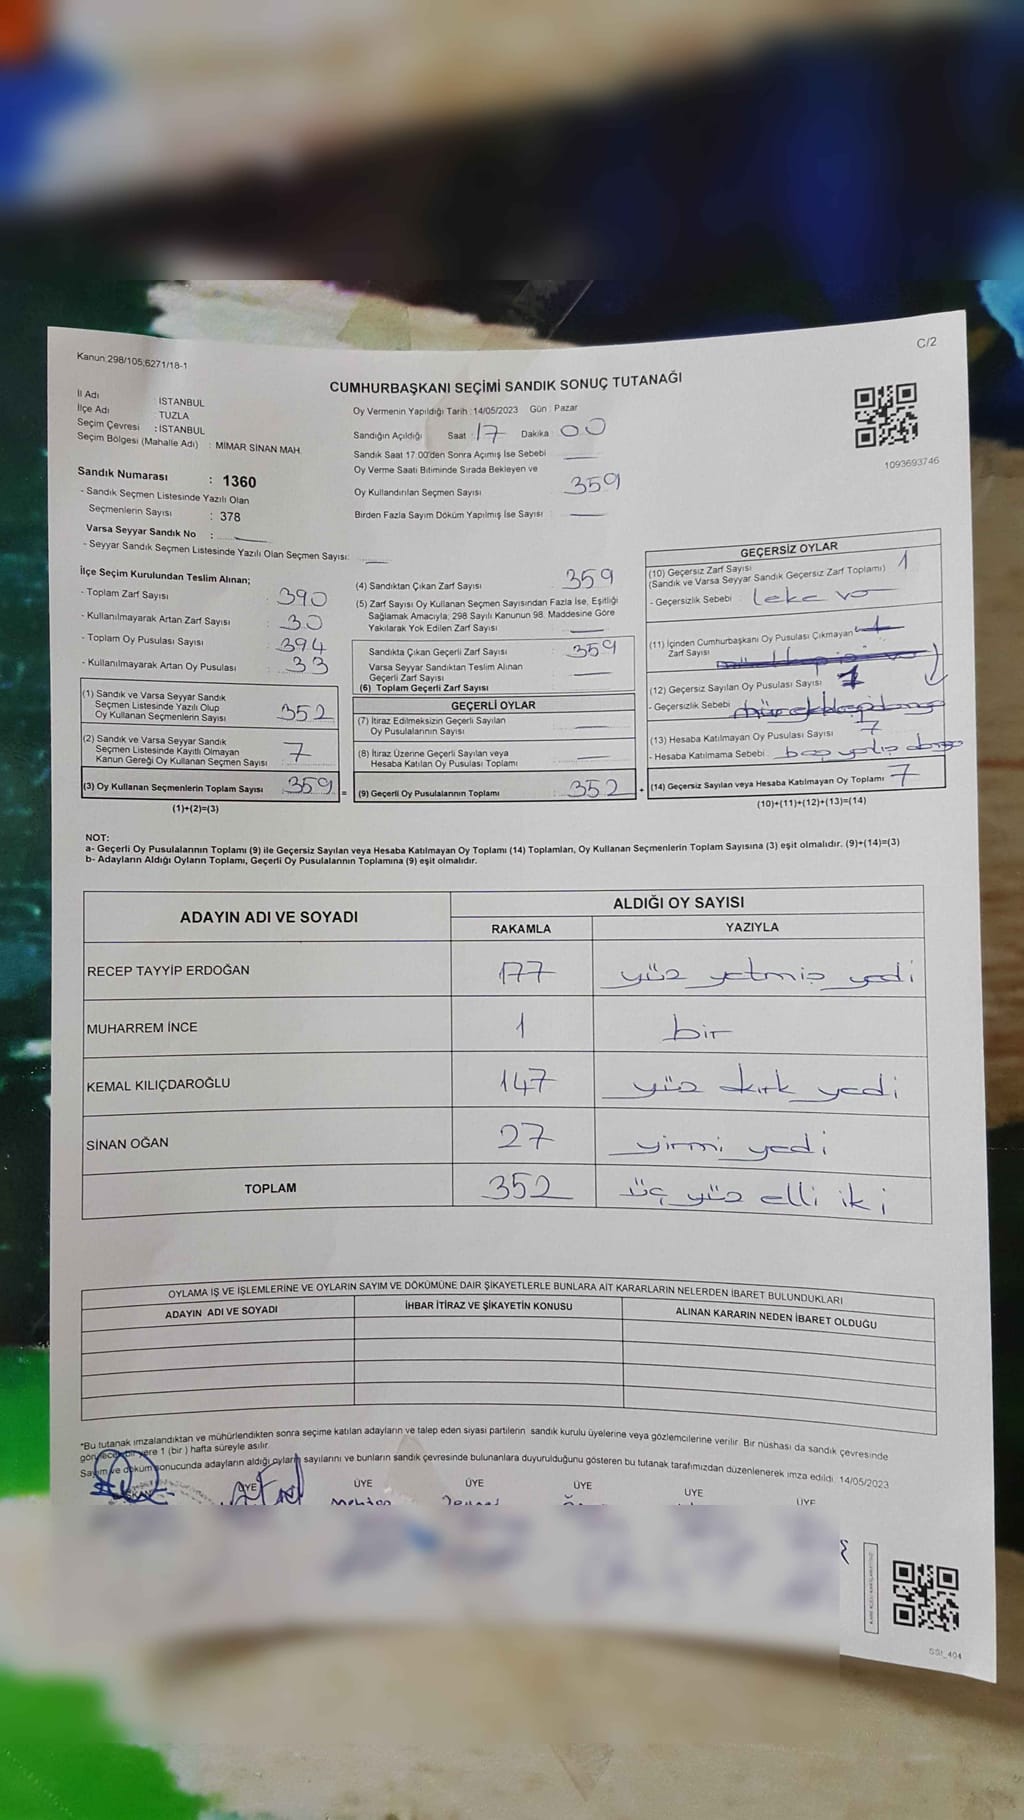 C/2
Kanun:298/105;6271/18-1
CUMHURBAŞKANI SEÇİMİ SANDIK SONUÇ TUTANAĞI
İl Adı : İSTANBUL
İlçe Adı : TUZLA
Seçim Çevresi : İSTANBUL
Seçim Bölgesi (Mahalle Adı) : MİMAR SİNAN MAH.
Sandık Numarası : 1360
- Sandık Seçmen Listesinde Yazılı Olan
Seçmenlerin Sayısı : 378
Varsa Seyyar Sandık No :
- Seyyar Sandık Seçmen Listesinde Yazılı Olan Seçmen Sayısı:
Oy Vermenin Yapıldığı Tarih : 14/05/2023 Gün : Pazar
Sandığın Açıldığı Saat : 17 Dakika 00
Sandık Saat 17:00'den Sonra Açımış İse Sebebi
Oy Verme Saati Bitiminde Sırada Bekleyen ve
Oy Kullandırılan Seçmen Sayısı : 359
Birden Fazla Sayım Döküm Yapılmış İse Sayısı :
1093693746
İlçe Seçim Kurulundan Teslim Alınan;
- Toplam Zarf Sayısı : 390
- Kullanılmayarak Artan Zarf Sayısı : 30
- Toplam Oy Pusulası Sayısı : 394
- Kullanılmayarak Artan Oy Pusulası : 33
(1) Sandık ve Varsa Seyyar Sandık
Seçmen Listesinde Yazılı Olup
Oy Kullanan Seçmenlerin Sayısı : 352
(2) Sandık ve Varsa Seyyar Sandık
Seçmen Listesinde Kayıtlı Olmayan
Kanun Gereği Oy Kullanan Seçmen Sayısı : 7
(3) Oy Kullanan Seçmenlerin Toplam Sayısı : 359 =
(1)+(2)=(3)
(4) Sandıktan Çıkan Zarf Sayısı : 359
(5) Zarf Sayısı Oy Kullanan Seçmen Sayısından Fazla İse, Eşitliği
Sağlamak Amacıyla; 298 Sayılı Kanunun 98. Maddesine Göre
Yakılarak Yok Edilen Zarf Sayısı :
Sandıkta Çıkan Geçerli Zarf Sayısı : 359
Varsa Seyyar Sandıktan Teslim Alınan
Geçerli Zarf Sayısı :
(6) Toplam Geçerli Zarf Sayısı
GEÇERLİ OYLAR
(7) İtiraz Edilmeksizin Geçerli Sayılan
Oy Pusulalarının Sayısı :
(8) İtiraz Üzerine Geçerli Sayılan veya
Hesaba Katılan Oy Pusulası Toplamı :
(9) Geçerli Oy Pusulalarının Toplamı : 352 +
GEÇERSİZ OYLAR
(10) Geçersiz Zarf Sayısı : 1
(Sandık ve Varsa Seyyar Sandık Geçersiz Zarf Toplamı)
- Geçersizlik Sebebi : leke var
(11) İçinden Cumhurbaşkanı Oy Pusulası Çıkmayan
Zarf Sayısı
(12) Geçersiz Sayılan Oy Pusulası Sayısı :
- Geçersizlik Sebebi
(13) Hesaba Katılmayan Oy Pusulası Sayısı : 7
- Hesaba Katılmama Sebebi :
(14) Geçersiz Sayılan veya Hesaba Katılmayan Oy Toplamı : 7
(10)+(11)+(12)+(13)=(14)
NOT:
a- Geçerli Oy Pusulalarının Toplamı (9) ile Geçersiz Sayılan veya Hesaba Katılmayan Oy Toplamı (14) Toplamları, Oy Kullanan Seçmenlerin Toplam Sayısına (3) eşit olmalıdır. (9)+(14)=(3)
b- Adayların Aldığı Oyların Toplamı, Geçerli Oy Pusulalarının Toplamına (9) eşit olmalıdır.
ADAYIN ADI VE SOYADI ALDIĞI OY SAYISI
RAKAMLA YAZIYLA
RECEP TAYYİP ERDOĞAN 177 yüz yetmiş yedi
MUHARREM İNCE 1 bir
KEMAL KILIÇDAROĞLU 147 yüz kırk yedi
SİNAN OĞAN 27 yirmi yedi
TOPLAM 352 üç yüz elli iki
OYLAMA İŞ VE İŞLEMLERİNE VE OYLARIN SAYIM VE DÖKÜMÜNE DAİR ŞİKAYETLERLE BUNLARA AİT KARARLARIN NELERDEN İBARET BULUNDUKLARI
ADAYIN ADI VE SOYADI İHBAR İTİRAZ VE ŞİKAYETİN KONUSU ALINAN KARARIN NEDEN İBARET OLDUĞU
*Bu tutanak imzalandıktan ve mühürlendikten sonra seçime katılan adayların ve talep eden siyasi partilerin sandık kurulu üyelerine veya gözlemcilerine verilir. Bir nüshası da sandık çevresinde
görülecek bir yere 1 (bir ) hafta süreyle asılır.
Sayım ve döküm sonucunda adayların aldığı oyların sayılarını ve bunların sandık çevresinde bulunanlara duyurulduğunu gösteren bu tutanak tarafımızdan düzenlenerek imza edildi. 14/05/2023
ÜYE ÜYE ÜYE ÜYE ÜYE ÜYE
SSI_404